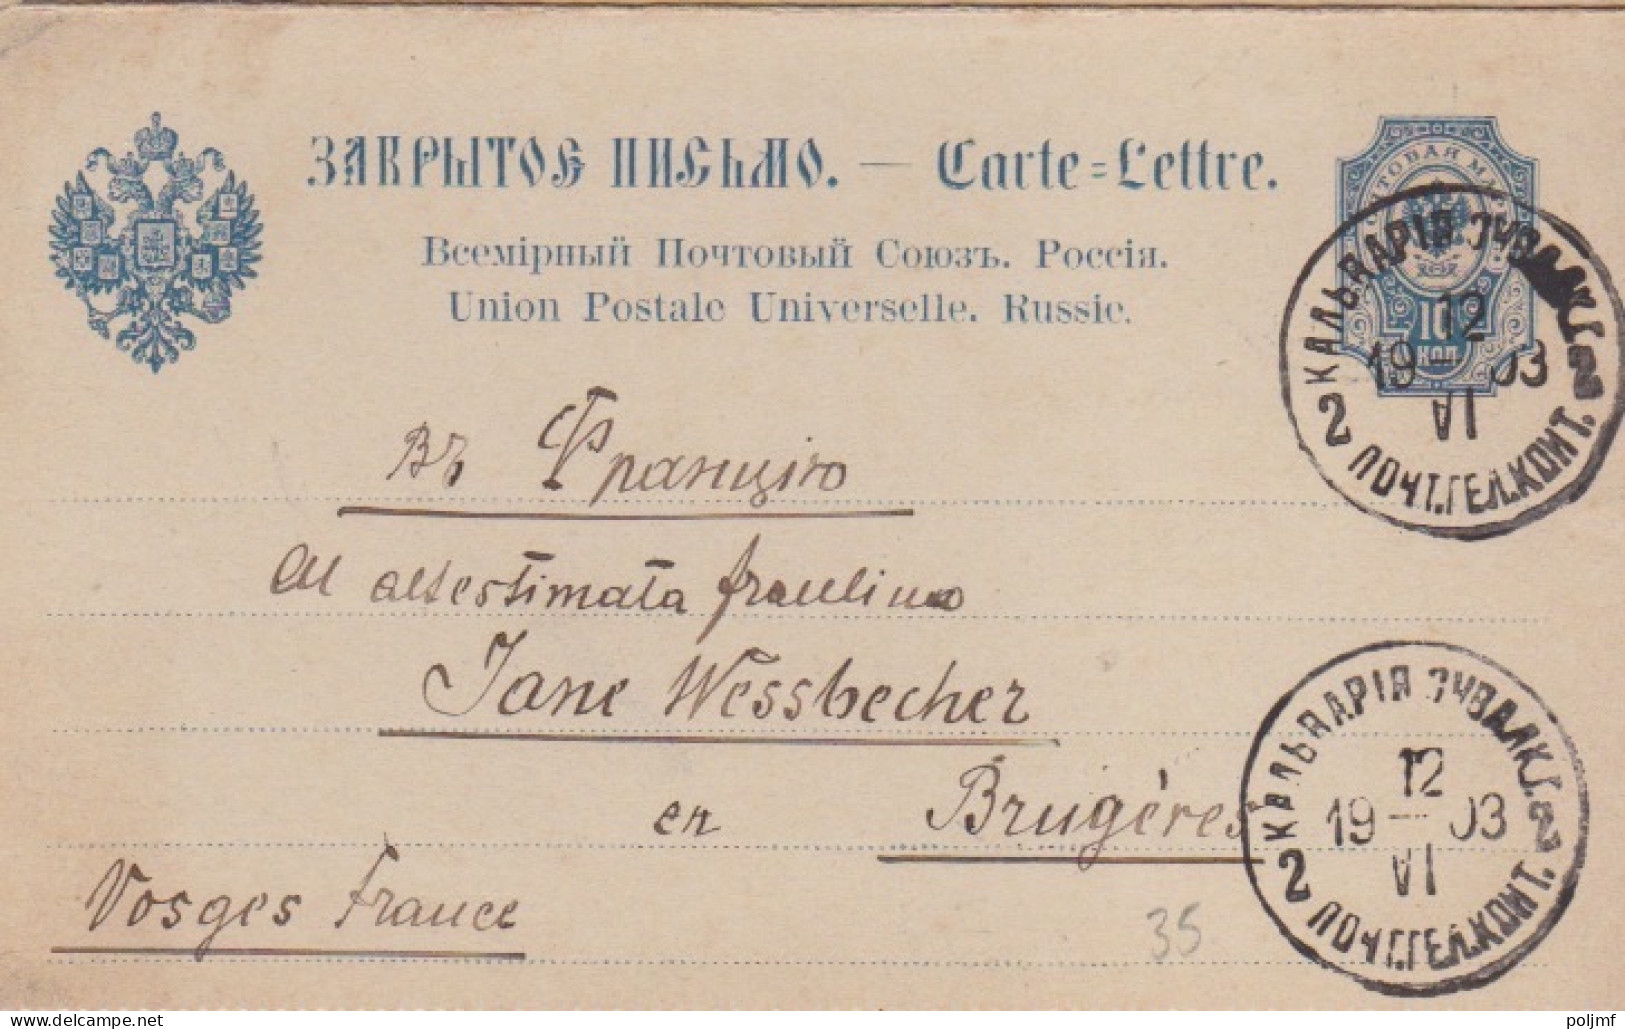 ЗАКРЫТОЕ ПИСЬМО. — Carte-Lettre.
Всемірный Почтовый Союзъ. Россія.
Union Postale Universelle. Russie.
ПОЧТОВАЯ МАР
10
КОП.
КАЛЬВАРІЯ СУВАЛК.Г.
12
19 — 03
VI
2 ПОЧТ.ТЕЛ.КОНТ. 2
въ Францію
Al altestimata fraulino
Jane Wessbecher
en Brugères
Vosges France
35
КАЛЬВАРІЯ СУВАЛК.Г.
12
19 — 03
VI
2 ПОЧТ.ТЕЛ.КОНТ. 2
delcampe.net
poljmf